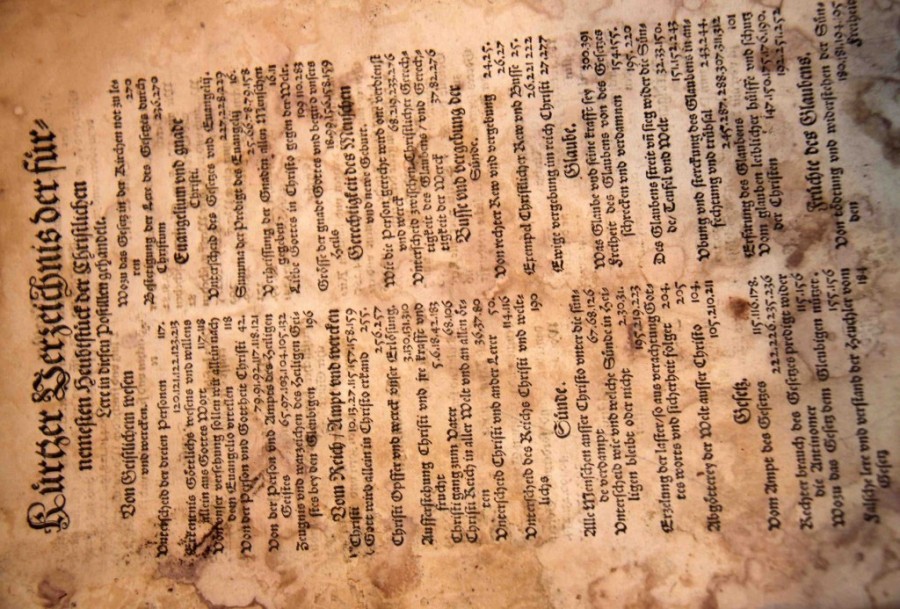 Kurtzer Verzeichnis der für-
nemesten Heubtstück der Christlichen
Lere in diesen Postillen gehandelt.
Von Göttlichem wesen
und wercken.
Unterscheid der dreien Personen 117.
120.121.122.123.213
Erkentnis Göttlichs wesens und willens
allein aus Gottes Wort 117.118
dem Euangelio urteilen 118
von der Person und Gottheit Christi 42.
79.91.92.117.118.121
Von der Person und Ampt des Heiligen
Geistes
Zeugnis und warzeichen des Heiligen Gei-
stes bey den Gleubigen 196
Vom Reich / Ampt und wercken
Christi
Gott wird allein in Christo erkand 255.
256.257
Christi Opffer und werck unser Erlösung.
Aufferstehung Christi und ire krafft und
frucht 5.6.18.42.183
Christi gang zum Vater 68.106
Christi Reich in aller Welt und an allen ör-
ten 39.57.80
Unterscheid Christi und ander Lerer 50.
114.116
Unterscheid des Reichs Christi und welt-
lichs 190
Sünde.
Alle Menschen ausser Christo unter die sün-
de verdampt 67.68.126
Unterscheid wie und welche Sünde in Hei-
ligen bleibe oder nicht 2.30.31.
195.219.223
Erzelung der laster / so aus verachtung Got-
tes worts und sicherheit folget 204.
205
Abgötterey der Welt ausser Christo 104.
105.210.211
Gesetz.
Vom Ampt des Gesetzes 115.116.178.
222.226.235.236
Rechter brauch des Gesetzes predigt wider
die Antinomer 115.156
Wozu das Gesetz dem Gleubigen nütze.
155.156
Falsche lere und verstand der Heuchler vom
Gesetz 184
Wozu das Gesetz in der Kirchen not zu le-
ren 270
Besserung der Lere des Gesetzes durch
Christum 256.270
Euangelium und gnade
Christi.
Unterscheid des Gesetzes und Euangelij.
227.228.229
Summa der Predigt des Euangelij 16.
25.60.78.79.158
Verheissung der Gnaden allen Menschen
gegeben 16.11
Liebe Gottes in Christo gegen der Welt.
109.110.283
Grösse der gnade Gottes und der wird unsers
Heils 18.99.156.158.159
Gerechtigkeit des Menschen
und newe Geburt.
Wie die Person gerecht werde on verdienst
und werck
Unterscheid zwisschen Christlicher Gerech-
tigkeit des Glaubens / und Gerech-
tigkeit der Werck 37.82.276
Busse und vergebung der
Sünde.
Von rechter Rew und vergebung 24.25.
26.27
Exempel Christlicher Rew und Busse 25.
26.221.222
Ewige vergebung im reich Christi 27.277
Glaube.
Was Glaube und seine krafft sey 390.391
Freiheit des Glaubens von des Gesetzes
schrecken und verdamnen 154.155.
195.220
Des Glaubens streit und sieg wider die Sün-
de / Teufel und Welt 32.33.150.
151.152.243
Ubung und sterckung des Glaubens in an-
fechtung und trübsal 243.244.
245.287.288.307.311.312
Erfarung des Glaubens 101
Vom glauben leiblicher hülffe und schutz
der Christen 147.150.175.176.190.
192.251.252
Früchte des Glaubens.
Von tödtung und widerstehen der Sün-
den 180.181.194.195
Freiheit